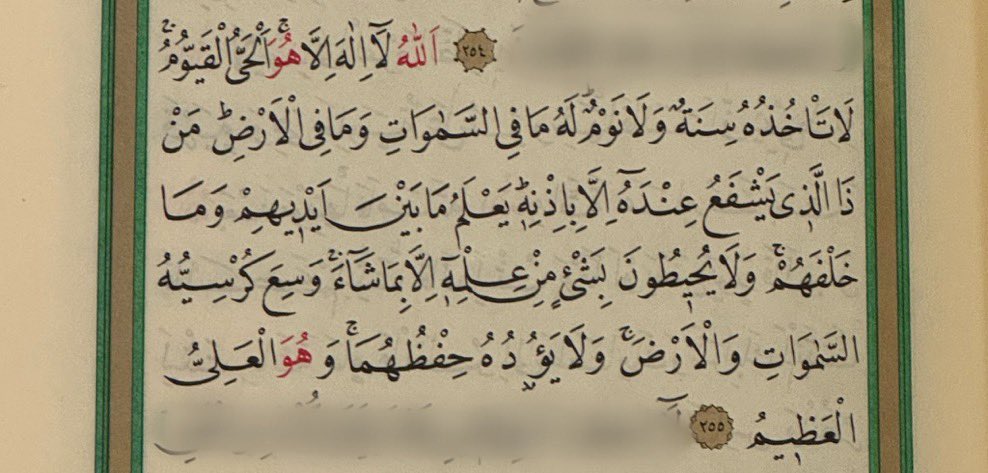 ﴿٢٥٤﴾ اَللّٰهُ لَٓا اِلٰهَ اِلَّا هُوَۚ اَلْحَيُّ الْقَيُّومُۚ
لَا تَأْخُذُهُ سِنَةٌ وَلَا نَوْمٌۜ لَهُ مَا فِي السَّمٰوَاتِ وَمَا فِي الْاَرْضِۜ مَنْ
ذَا الَّذ۪ي يَشْفَعُ عِنْدَهُٓ اِلَّا بِاِذْنِه۪ۜ يَعْلَمُ مَا بَيْنَ اَيْد۪يهِمْ وَمَا
خَلْفَهُمْۚ وَلَا يُح۪يطُونَ بِشَيْءٍ مِنْ عِلْمِه۪ٓ اِلَّا بِمَا شَٓاءَۚ وَسِعَ كُرْسِيُّهُ
السَّمٰوَاتِ وَالْاَرْضَۚ وَلَا يَؤُ۫دُهُ حِفْظُهُمَاۚ وَهُوَ الْعَلِيُّ
الْعَظ۪يمُ ﴿٢٥٥﴾